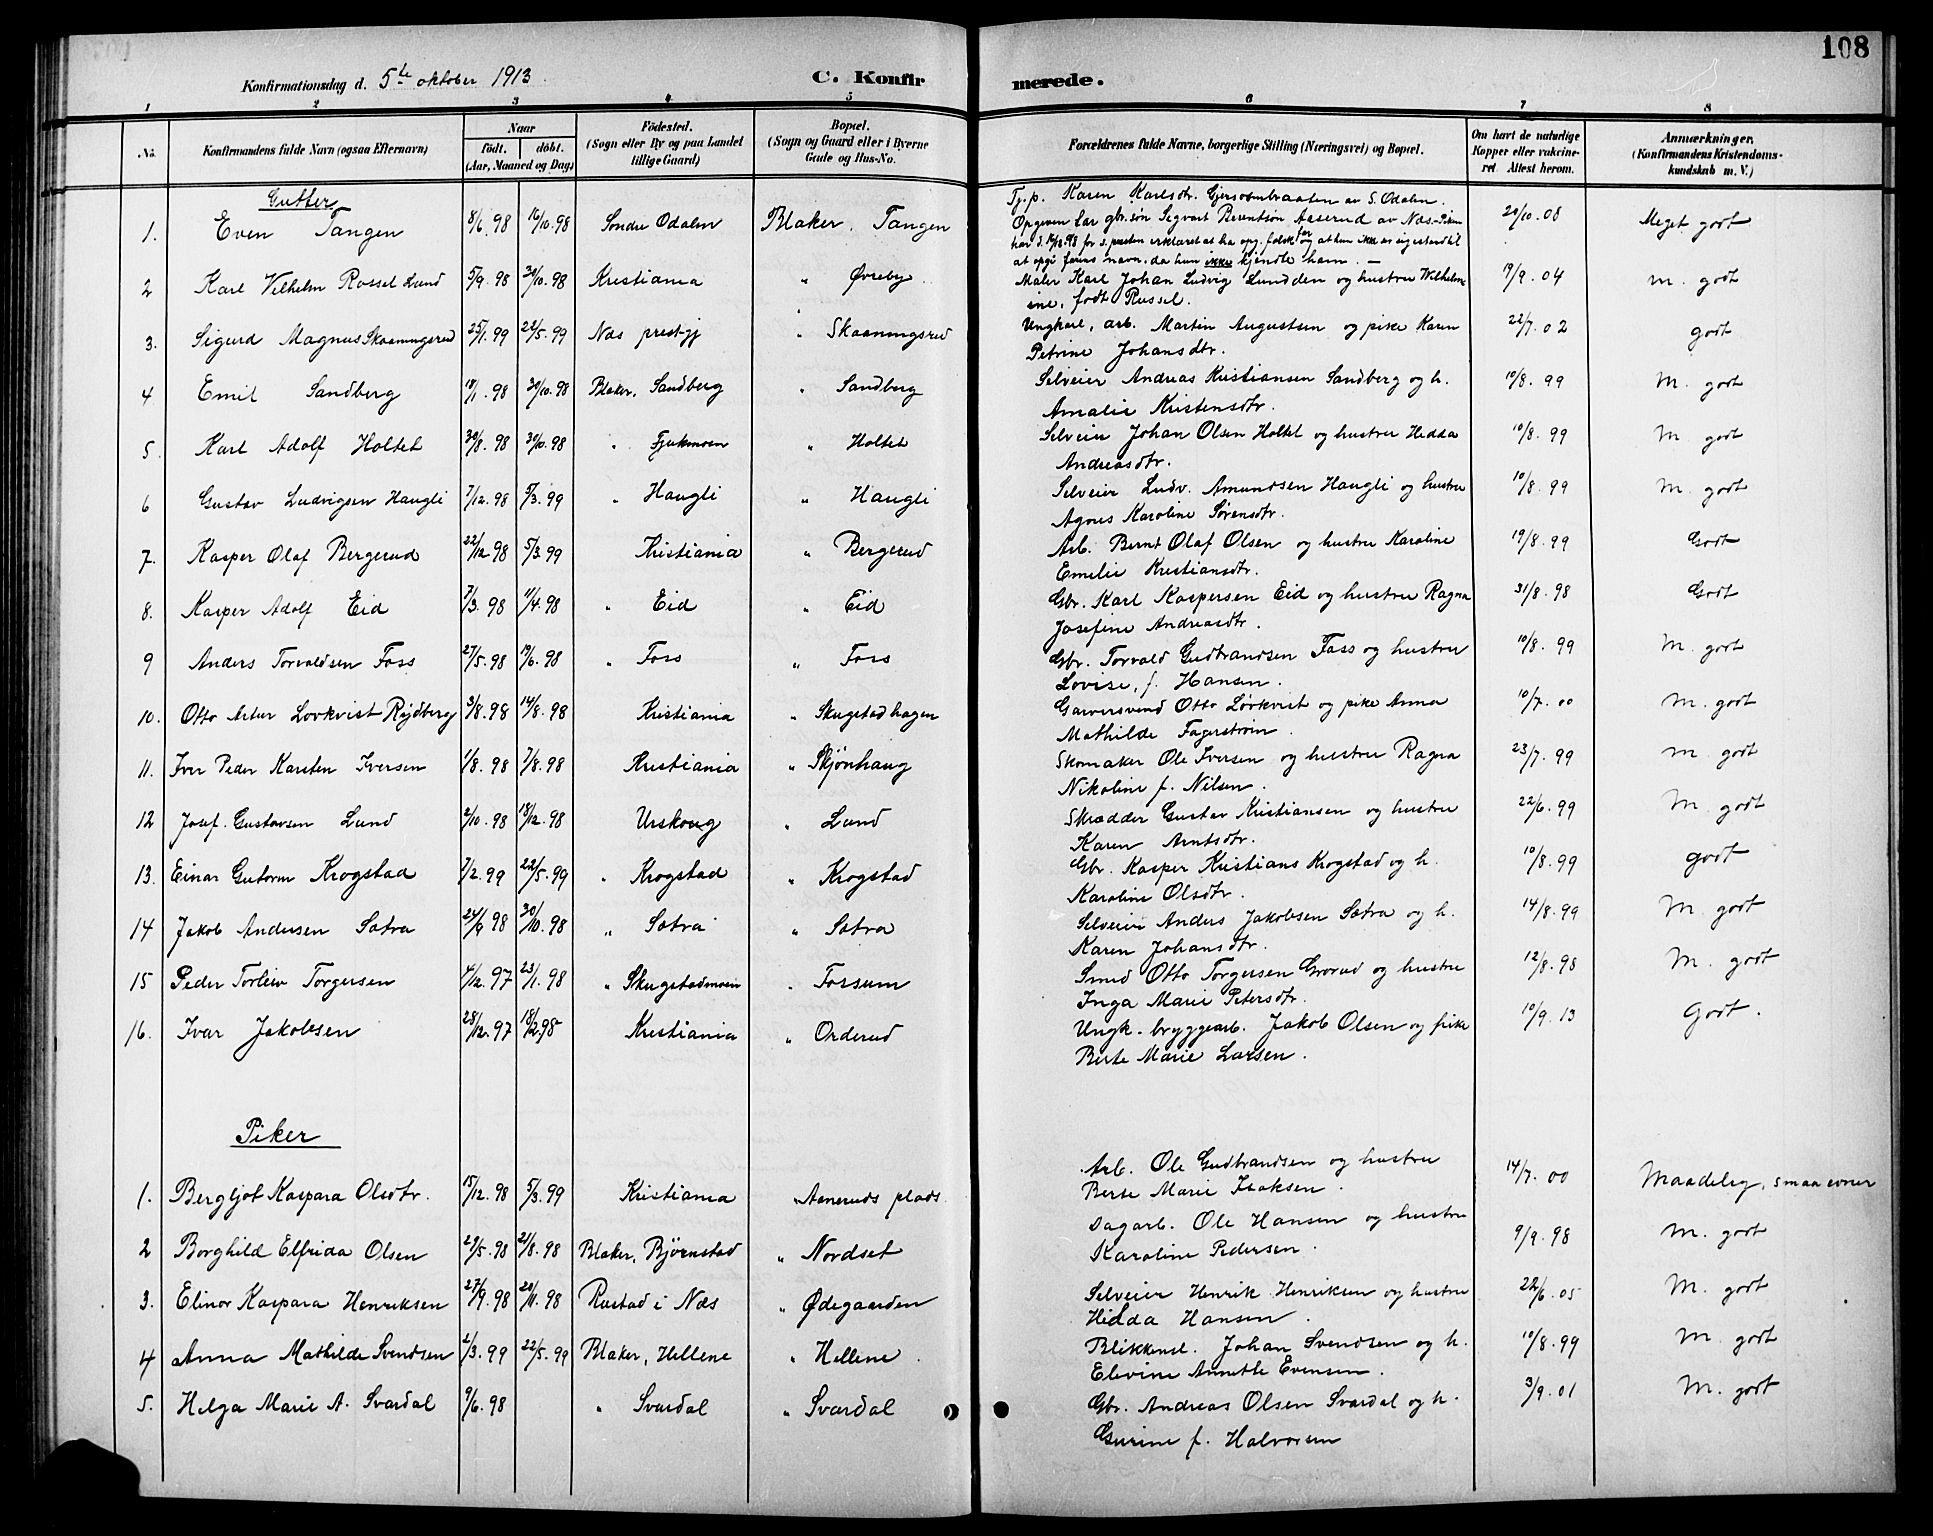 108
Konfirmationsdag d. 5te oktober 1913
C. Konfirmerede.
1 2 3 4 5 6 7 8
No.
Konfirmandens fulde Navn (ogsaa Efternavn)
Naar
födt. döbt.
(Aar, Maaned og Dag)
Födested.
(Sogn eller By og paa Landet
tillige Gaard)
Bopæl.
(Sogn og Gaard eller i Byerne
Gade og Hus-No.
Forældrenes fulde Navne, borgerlige Stilling (Næringsvei) og Bopæl.
Om havt de naturlige
Kopper eller vakcine-
ret Attest herom.
Anmærkninger.
(Konfirmandens Kristendoms-
kundskab m. V.)
Gutter
1. Even Tangen 8/6. 98 16/10. 98 Søndre Odalen Blaker, Tangen Tj.p. Karen Karlsdtr. Gjersombraaten av S. Odalen. 20/10. 08 Meget godt
Opgiven far gbr. søn Sigvart Berentsøn Aaserud av Næs. Piken
har d. 16/12 98 for s. presten erklæret at ha opg. falsk far og at hun ikke er istand til
at opgi farens navn, da hun ikke kjendte ham. —
2 Karl Vilhelm Rossel Lund 5/9. 98 30/10. 98 Kristiania " Øvreby Maler Karl Johan Ludvig Lundden og hustru Wilhelm- 19/9. 04 m. godt
ine, født Russel.
3. Sigurd Magnus Skaaningsrud 25/1. 99 22/5. 99 Næs prestgj " Skaaningsrud Ungkarl, arb. Martin Augustsen og pike Karen 22/7. 02 godt
Petrine Johansdtr.
4 Emil Sandberg 18/1. 98 30/10. 98 Blaker, Sandberg " Sandberg Selveier Andreas Kristiansen Sandberg og h. 10/8. 99 M. godt
Amalie Kristensdtr.
5. Karl Adolf Holtet 30/8. 98 30/10. 98 " Fjukmoen " Holtet Selveier Johan Olsen Holtet og hustru Hedda 10/8. 99 M godt
Andreasdtr.
6 Gustav Ludvigsen Haugli 7/12. 98 5/3. 99 " Haugli " Haugli Selveier Ludv. Amundsen Haugli og hustru 10/8. 99 M. godt
Agnes Karoline Sørensdtr.
7. Kasper Olaf Bergerud 22/12. 98 5/3. 99 Kristiania " Bergerud Arb. Bernt Olaf Olsen og hustru Karoline 19/8. 99 Godt
Emelie Kristiansdtr.
8. Kasper Adolf Eid 7/3. 98 11/4. 98 " Eid " Eid Gbr. Karl Kaspersen Eid og hustru Ragna 31/8. 98 Godt
Josefine Andreasdtr.
9 Anders Torvaldsen Foss 27/5. 98 19/6. 98 " Foss " Foss Gbr. Torvald Gudbrandsen Foss og hustru 10/8. 99 M. godt
Lovise, f. Hansen.
10. Otto Artur Lovkvist Rydberg 3/8. 98 14/8. 98 Kristiania " Skugstadhagen Garversvend Otto Lövkvist og pike Anna 10/7. 00 M. godt
Mathilde Fagerström.
11. Iver Peder Karsten Iversen 1/8. 98 7/8. 98 Kristiania " Skjönhaug Skomaker Ole Iversen og hustru Ragna 23/7. 99 m. godt
Nikoline f. Nilsen.
12 Josef Gustavsen Lund 2/10. 98 18/12. 98 Urskoug " Lund Skrædder Gustav Kristiansen og hustru 22/6. 99 M. godt
Karen Arntsdtr.
13. Einar Gutorm Krogstad 7/2. 99 22/5. 99 " Krogstad " Krogstad Gbr. Kasper Kristians Krogstad og h. 10/8. 99 godt
Karoline Olsdtr.
14 Jakob Andersen Sætra 24/6 98 30/10. 98 " Sætra " Sætra Selveier Anders Jakobsen Sætra og h. 14/8. 99 M. godt
Karen Johansdtr.
15 Peder Torleiv Torgersen 4/12. 97 23/1. 98 " Skugstadmoen " Fossum Smed Otto Torgersen Grorud og hustru 12/8. 98 M. godt
Inga Marie Petersdtr.
16. Ivar Jakobsen 28/12. 97 18/2. 98 Kristiania " Orderud Ungk. bryggearb. Jakob Olsen og pike 10/9. 13 Godt.
Berte Marie Larsen.
Piker
1. Bergljot Kaspara Olsdtr. 15/12. 98 5/3. 99 Kristiania " Aaneruds plads Arb. Ole Gudbrandsen og hustru 14/7. 00 Maadelig, smaa evner
Berte Marie Isaksen.
2 Borghild Elfrida Olsen 29/5. 98 21/8. 98 Blaker, Bjørnstad " Nordset Dagarb. Ole Hansen og hustru 9/9. 98 M. godt
Karoline Pedersen.
3. Elinor Kaspara Henriksen 27/9. 98 20/11. 98 Rustad i Næs " Ødegaarden Selveier Henrik Henriksen og hustru 22/6. 05 M. godt
Hedda Hansen.
4 Anna Mathilde Svendsen 2/3. 99 22/5. 99 Blaker, Hellene " Hellene Blikkensl. Johan Svendsen og h. 10/8. 99 M. godt
Elevine Annette Evensen.
5. Helga Marie A. Svardal 9/6. 98 " Svardal " Svardal Gbr. Andreas Olsen Svardal og h. 3/9. 01 M. godt
Gurine f. Halvorsen